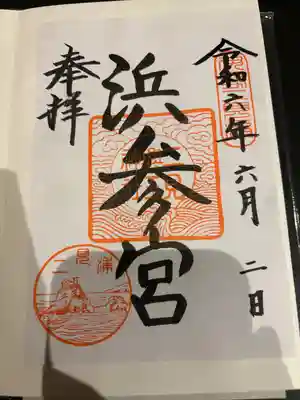 令和六年六月二日
浜参宮
奉拝
二見浦